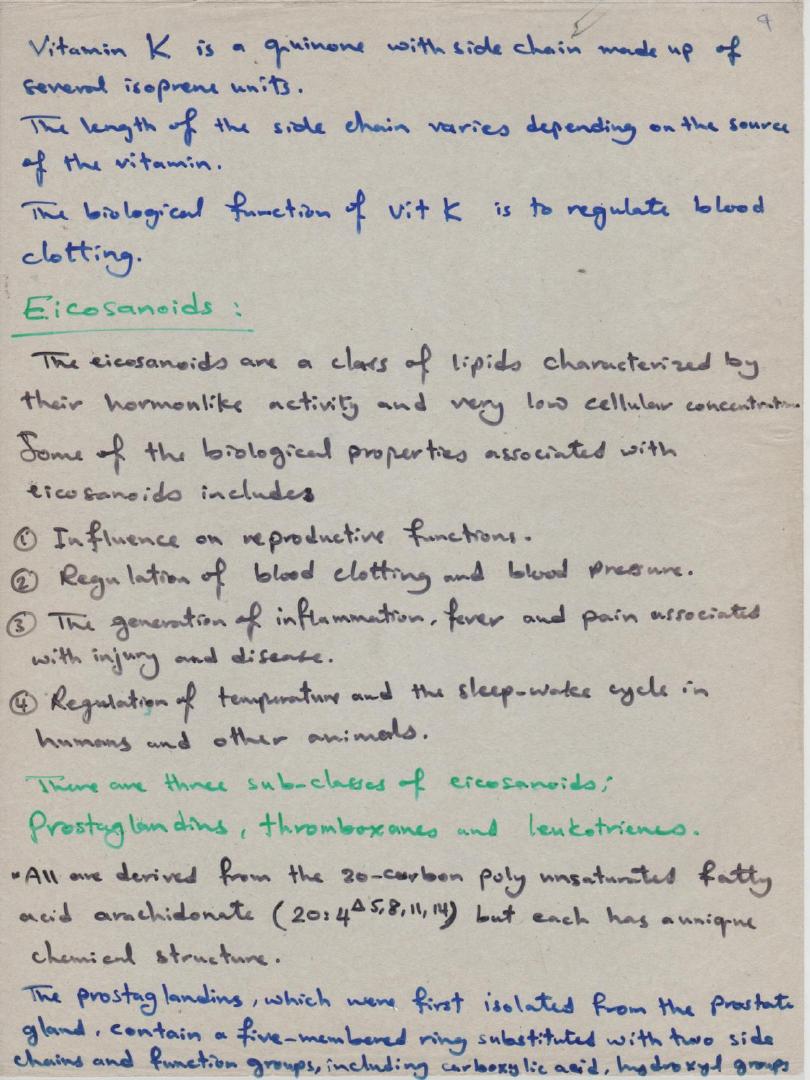 9
Vitamin K is a quinone with side chain made up of
several isoprene units.
The length of the side chain varies depending on the source
of the vitamin.
The biological function of vit K is to regulate blood
clotting.
Eicosanoids :
The eicosanoids are a class of lipids characterized by
their hormonlike activity and very low cellular concentration.
Some of the biological properties associated with
eicosanoids includes
① Influence on reproductive functions.
② Regulation of blood clotting and blood pressure.
③ The generation of inflammation, fever and pain associated
with injury and disease.
④ Regulation of temperature and the sleep-wake cycle in
humans and other animals.
There are three sub-classes of eicosanoids;
Prostaglandins, thromboxanes and leukotrienes.
"All are derived from the 20-carbon poly unsaturated fatty
acid arachidonate (20:4 Δ5,8,11,14) but each has a unique
chemical structure.
The prostaglandins, which were first isolated from the prostate
gland, contain a five-membered ring substituted with two side
chains and function groups, including carboxylic acid, hydroxyl groups